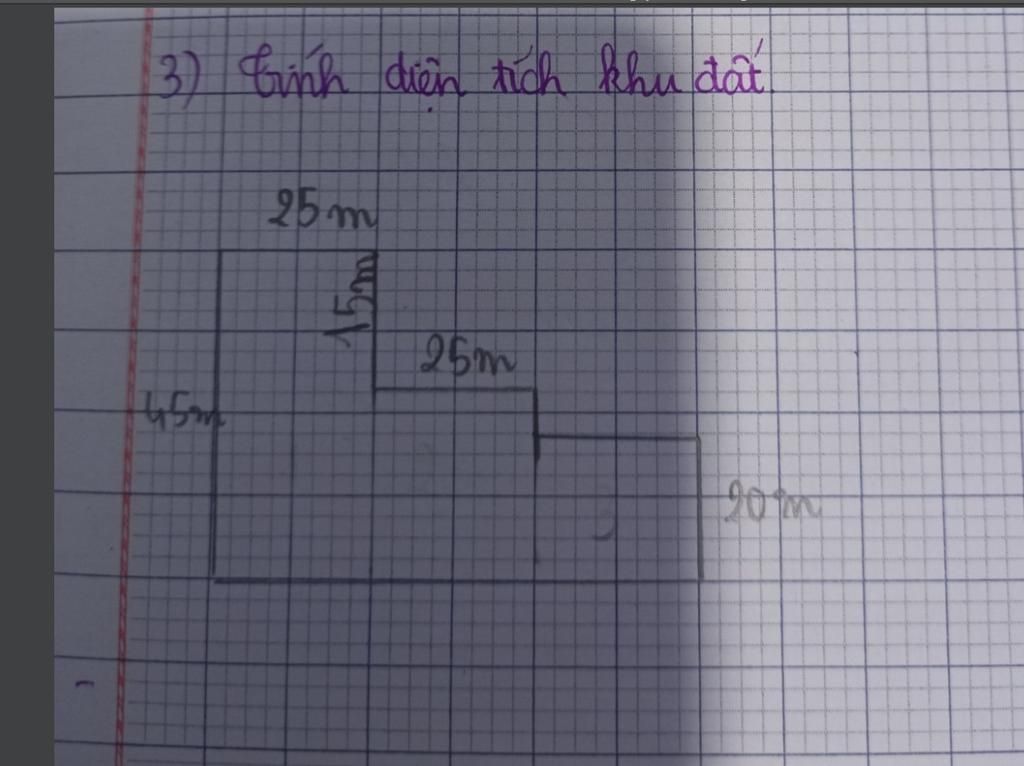 3) Tính diện tích khu đất.
25m
15m
25m
45m
20m